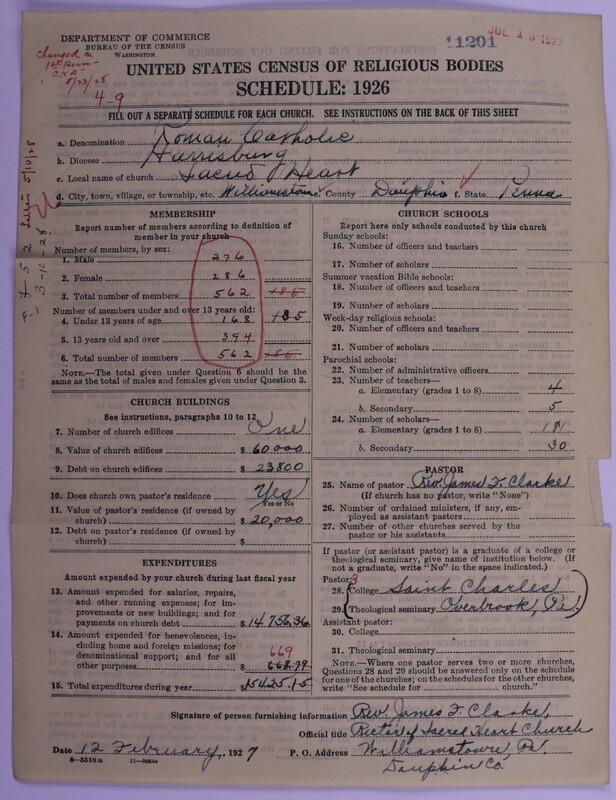 DEPARTMENT OF COMMERCE
BUREAU OF THE CENSUS
WASHINGTON
11201
JUL 18 1927
Changed on
5/23/28
4-9
UNITED STATES CENSUS OF RELIGIOUS BODIES
SCHEDULE: 1926
FILL OUT A SEPARATE SCHEDULE FOR EACH CHURCH. SEE INSTRUCTIONS ON THE BACK OF THIS SHEET
a. Denomination Roman Catholic
b. Diocese Harrisburg
c. Local name of church Sacred Heart
d. City, town, village, or township, etc. Williamstown e. County Dauphin f. State Penna
5/10/28
F-1 3-10-28
MEMBERSHIP
Report number of members according to definition of member in your church
Number of members, by sex:
1. Male 276
2. Female 286
3. Total number of members 562 185
Number of members under and over 13 years old:
4. Under 13 years of age 168 185
5. 13 years old and over 394
6. Total number of members 562 185
NOTE.—The total given under Question 6 should be
same as the total of males and females given under Question 3.
CHURCH BUILDINGS
See instructions, paragraphs 10 to 12
7. Number of church edifices One
8. Value of church edifices $ 60,000
9. Debt on church edifices $ 23,800
10. Does church own pastor's residence Yes
Yes or No
11. Value of pastor's residence (if owned by
church) $ 20,000
12. Debt on pastor's residence (if owned by
church) $
EXPENDITURES
Amount expended by your church during last fiscal year
13. Amount expended for salaries, repairs,
and other running expenses; for im-
provements or new buildings; and for
payments on church debt $ 14,756.36
14. Amount expended for benevolences, in-
cluding home and foreign missions; for
denominational support; and for all 669
other purposes $ 668.79
15. Total expenditures during year $ 15425.15
CHURCH SCHOOLS
Report here only schools conducted by this church
Sunday schools:
16. Number of officers and teachers
17. Number of scholars
Summer vacation Bible schools:
18. Number of officers and teachers
19. Number of scholars
Week-day religious schools:
20. Number of officers and teachers
21. Number of scholars
Parochial schools:
22. Number of administrative officers
23. Number of teachers—
a. Elementary (grades 1 to 8) 4
b. Secondary 5
24. Number of scholars—
a. Elementary (grades 1 to 8) 181
b. Secondary 30
PASTOR
25. Name of pastor Rev. James F. Clarke
(If church has no pastor, write "None")
26. Number of ordained ministers, if any, em-
ployed as assistant pastors
27. Number of other churches served by the
pastor or his assistants
If pastor (or assistant pastor) is a graduate of a college or
theological seminary, give name of institution below. (If
not a graduate, write "No" in the space indicated.)
Pastor: 3
28. College Saint Charles
29. Theological seminary Overbrook, (Pa.)
Assistant pastor:
30. College
31. Theological seminary
NOTE.—Where one pastor serves two or more churches,
Questions 28 and 29 should be answered only on the schedule
for one of the churches; on the schedules for the other churches,
write "See schedule for church."
Signature of person furnishing information Rev. James F. Clarke,
Official title Rector of Sacred Heart Church
Date 12 February, 1927 P. O. Address Williamstown, Pa
Dauphin Co.
8-5518a